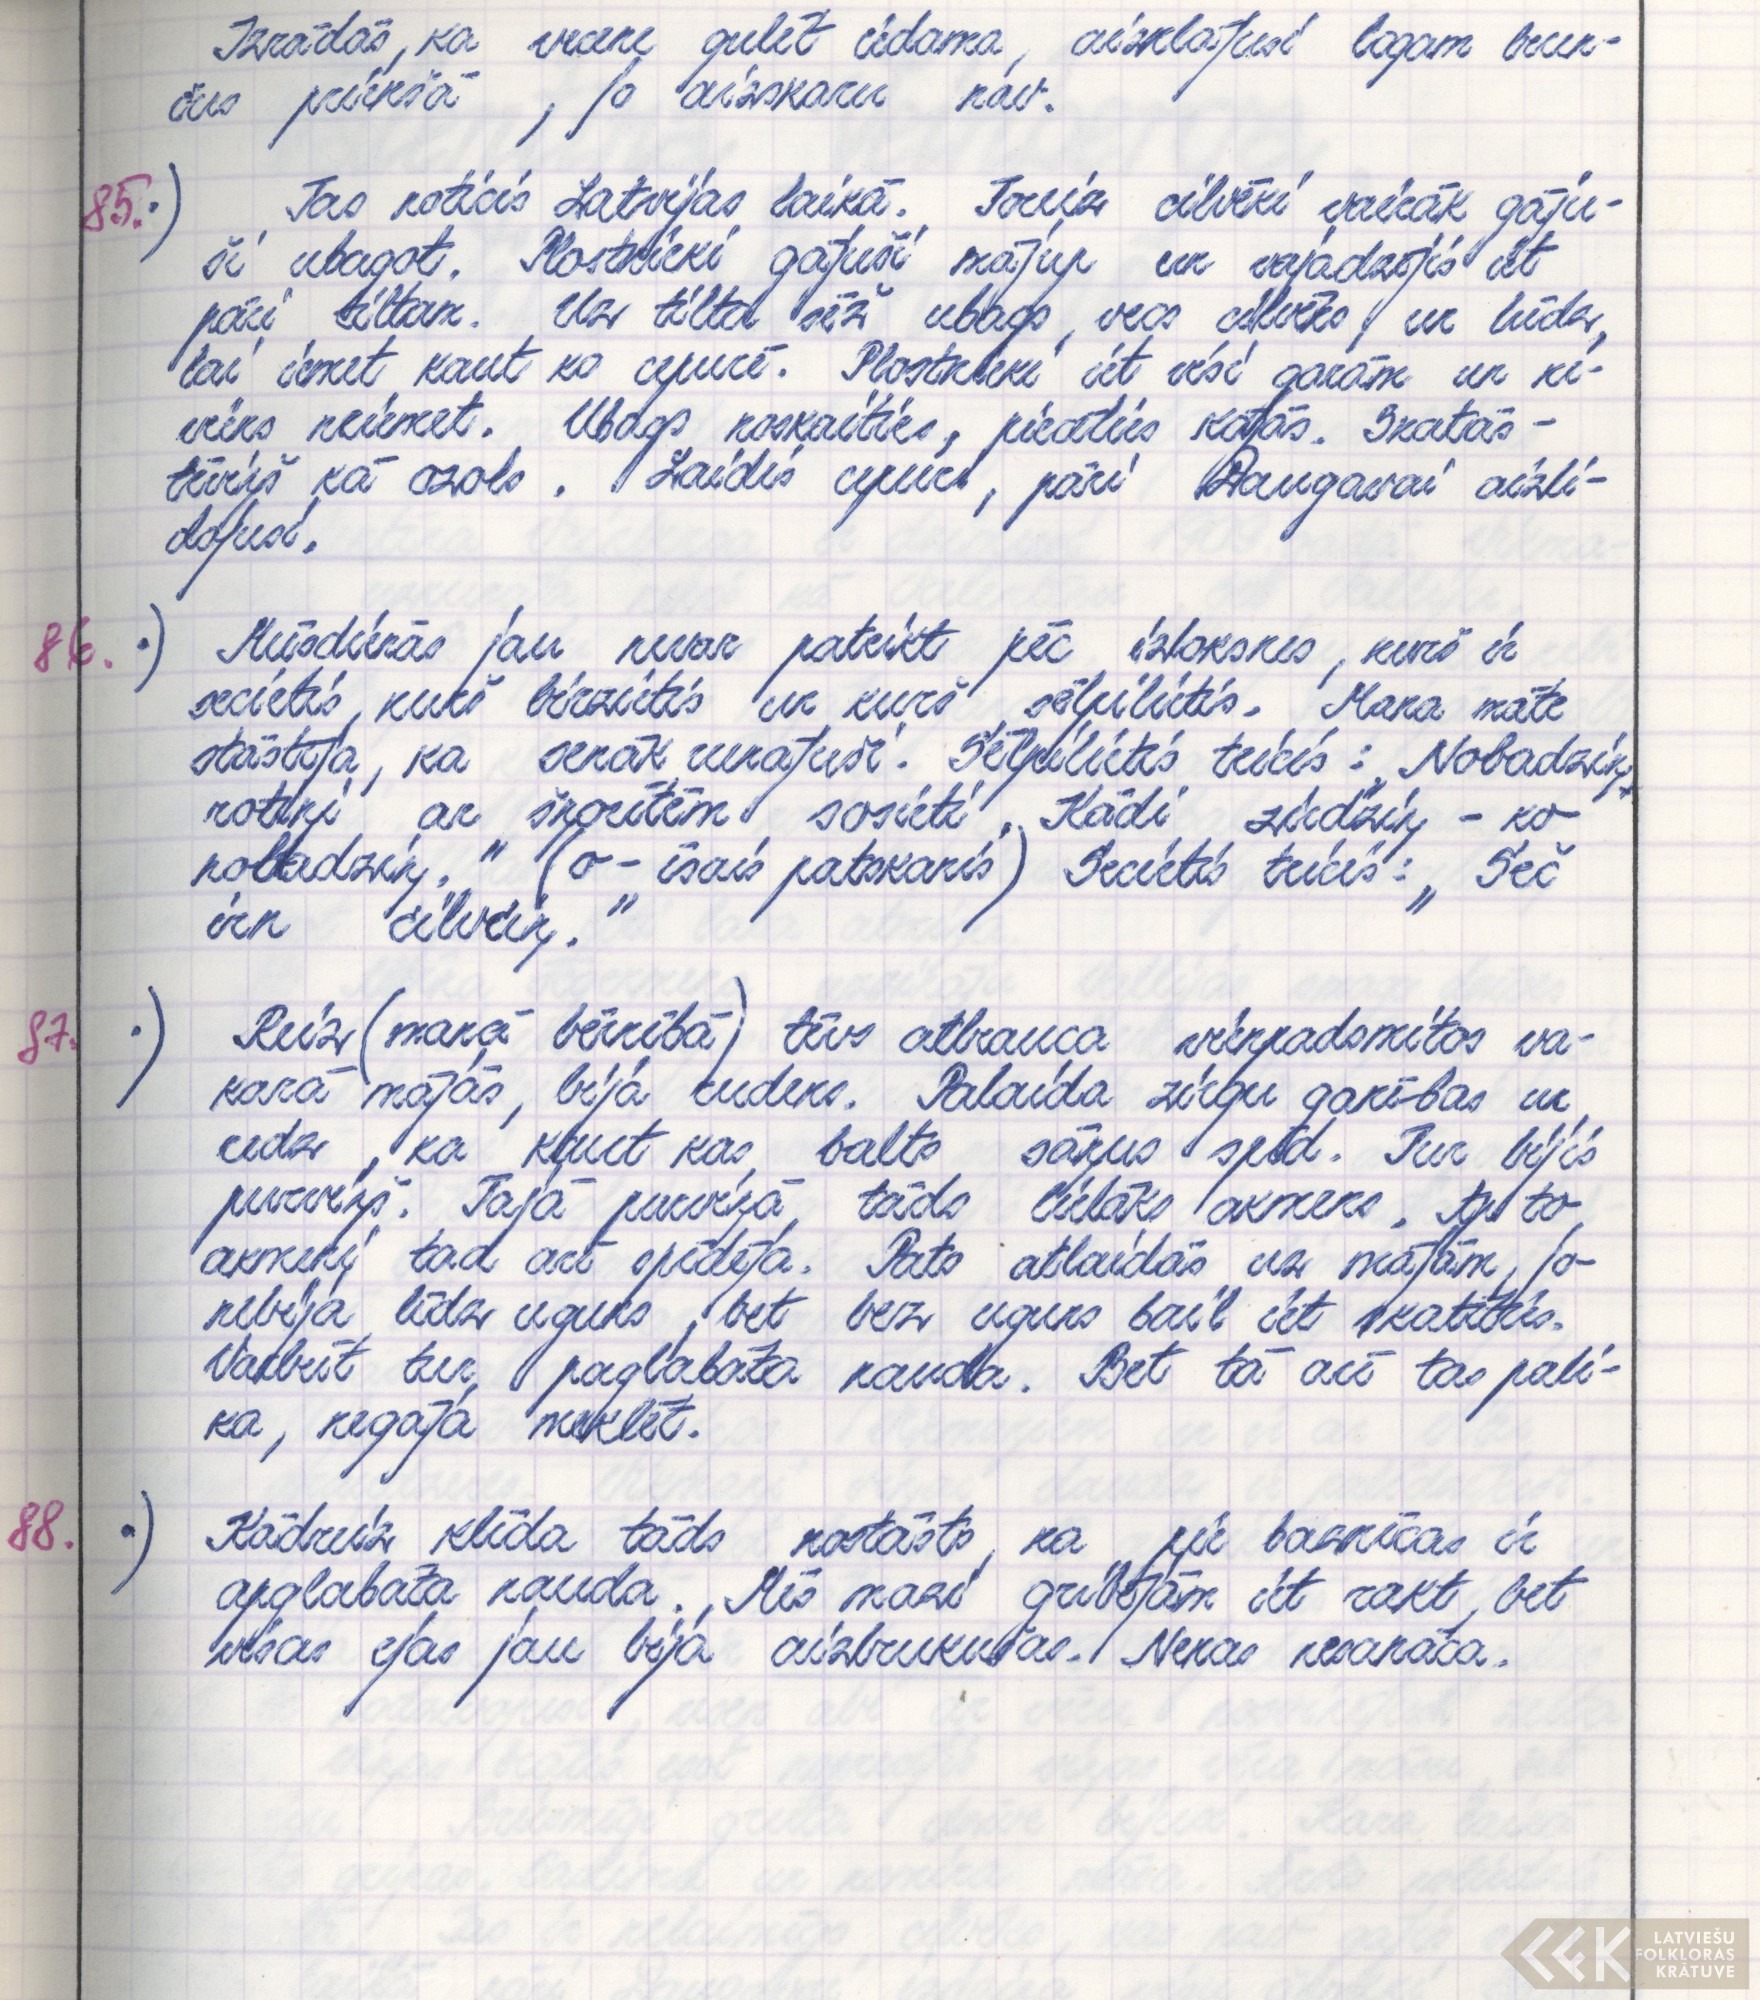 Izrādās, ka vecene gulēt iedama, aizklājusi logam brun-
čus priekšā, jo aizskaru nav.
85.·) Tas noticis Latvijas laikā. Toreiz cilvēki vairāk gāju-
ši ubagot. Plostnieki gājuši mājup un vajadzējis iet
pāri tiltam. Uz tilta sēž ubags, vecs cilvēks, un lūdz,
lai iemet kaut ko cepurē. Plostnieki iet visi garām un ne-
viens neiemet. Ubags noskaities, piecēlies kājās. Skatās -
tēviņš kā ozols. Laidis cepuri, pāri Daugavai aizli-
dojusi.
86.·) Mūsdienās jau nevar pateikt pēc izloksnes, kurš ir
secietis, kurš birzietis un kurš sēlpilietis. Mana māte
stāstīja, ka senāk runājuši. Sēlpilietis teicis: „Nobadziņ,
notiņi ar škorītēm sosieti. Kādi ziedziņ - ko
nobadziņ." (o - īsais patskanis) Secietis teicis: „Seč
irn cilveiņ."
87.·) Reiz (manā bērnībā) tēvs atbrauca vienpadsmitos va-
karā mājās, bija rudens. Palaida zirgu ganības un
redz, ka kaut kas balts sāņus spīd. Tur bijis
purviņš. Tajā purviņā tāds lielāks akmens. Ap to
akmeni tad arī spīdēja. Pats atlaidās uz mājām, jo
nebija līdz uguns, bet bez uguns bail iet skatīties.
Varbūt tur paglabāta nauda. Bet tā arī tas pali-
ka, negāja meklēt.
88.·) Kādreiz klīda tāds nostāsts, ka pie baznīcas ir
apglabāta nauda. Mēs mazi gribējām iet rakt, bet
visas ejas jau bija aizbrukušas. Nekas nesanāca.
LATVIEŠU
FOLKLORAS
KRĀTUVE